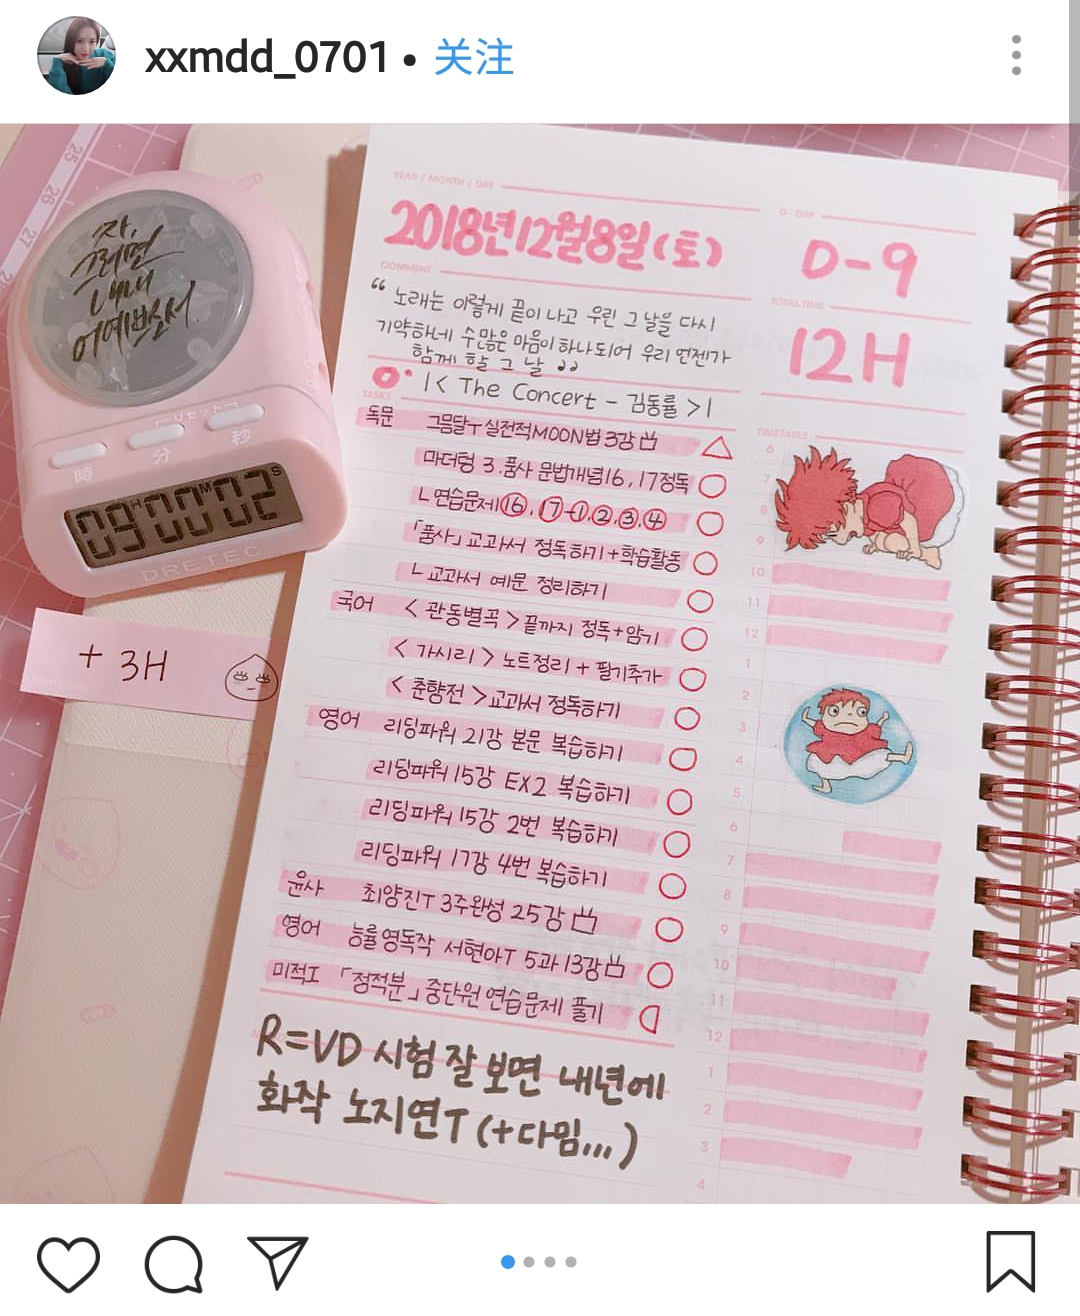 xxmdd_0701 • 关注
25
26
27
자,
그러면
내내
어여쁘소서
リセット
時 分 秒
09H00M02S
DRETEC
+ 3H
YEAR / MONTH / DAY
2018년 12월 8일 (토)
D - DAY
D-9
COMMENT
“ 노래는 이렇게 끝이 나고 우린 그 날을 다시
기약하네 수많은 마음이 하나되어 우리 언젠가
함께 할 그 날 ♪♪
|< The Concert - 김동률 >|
TOTAL TIME
12H
TASKS
독문 그믐달T 실전적MOON법 3강
마더텅 3.품사 문법개념16, 17정독
ㄴ연습문제⑯, ⑰-①,②,③,④
「품사」교과서 정독하기+학습활동
ㄴ교과서 예문 정리하기
국어 <관동별곡>끝까지 정독+암기
<가시리> 노트정리 + 필기추가
<춘향전>교과서 정독하기
영어 리딩파워 21강 본문 복습하기
리딩파워 15강 EX2 복습하기
리딩파워 15강 2번 복습하기
리딩파워 17강 4번 복습하기
윤사 최양진T 3주완성 25강
영어 능률영독작 서현아T 5과 13강
미적I 「정적분」중단원 연습문제 풀기
R=VD 시험 잘 보면 내년에
화작 노지연T (+다밈...)
TIMETABLE
6
7
8
9
10
11
12
1
2
3
4
5
6
7
8
9
10
11
12
1
2
3
4